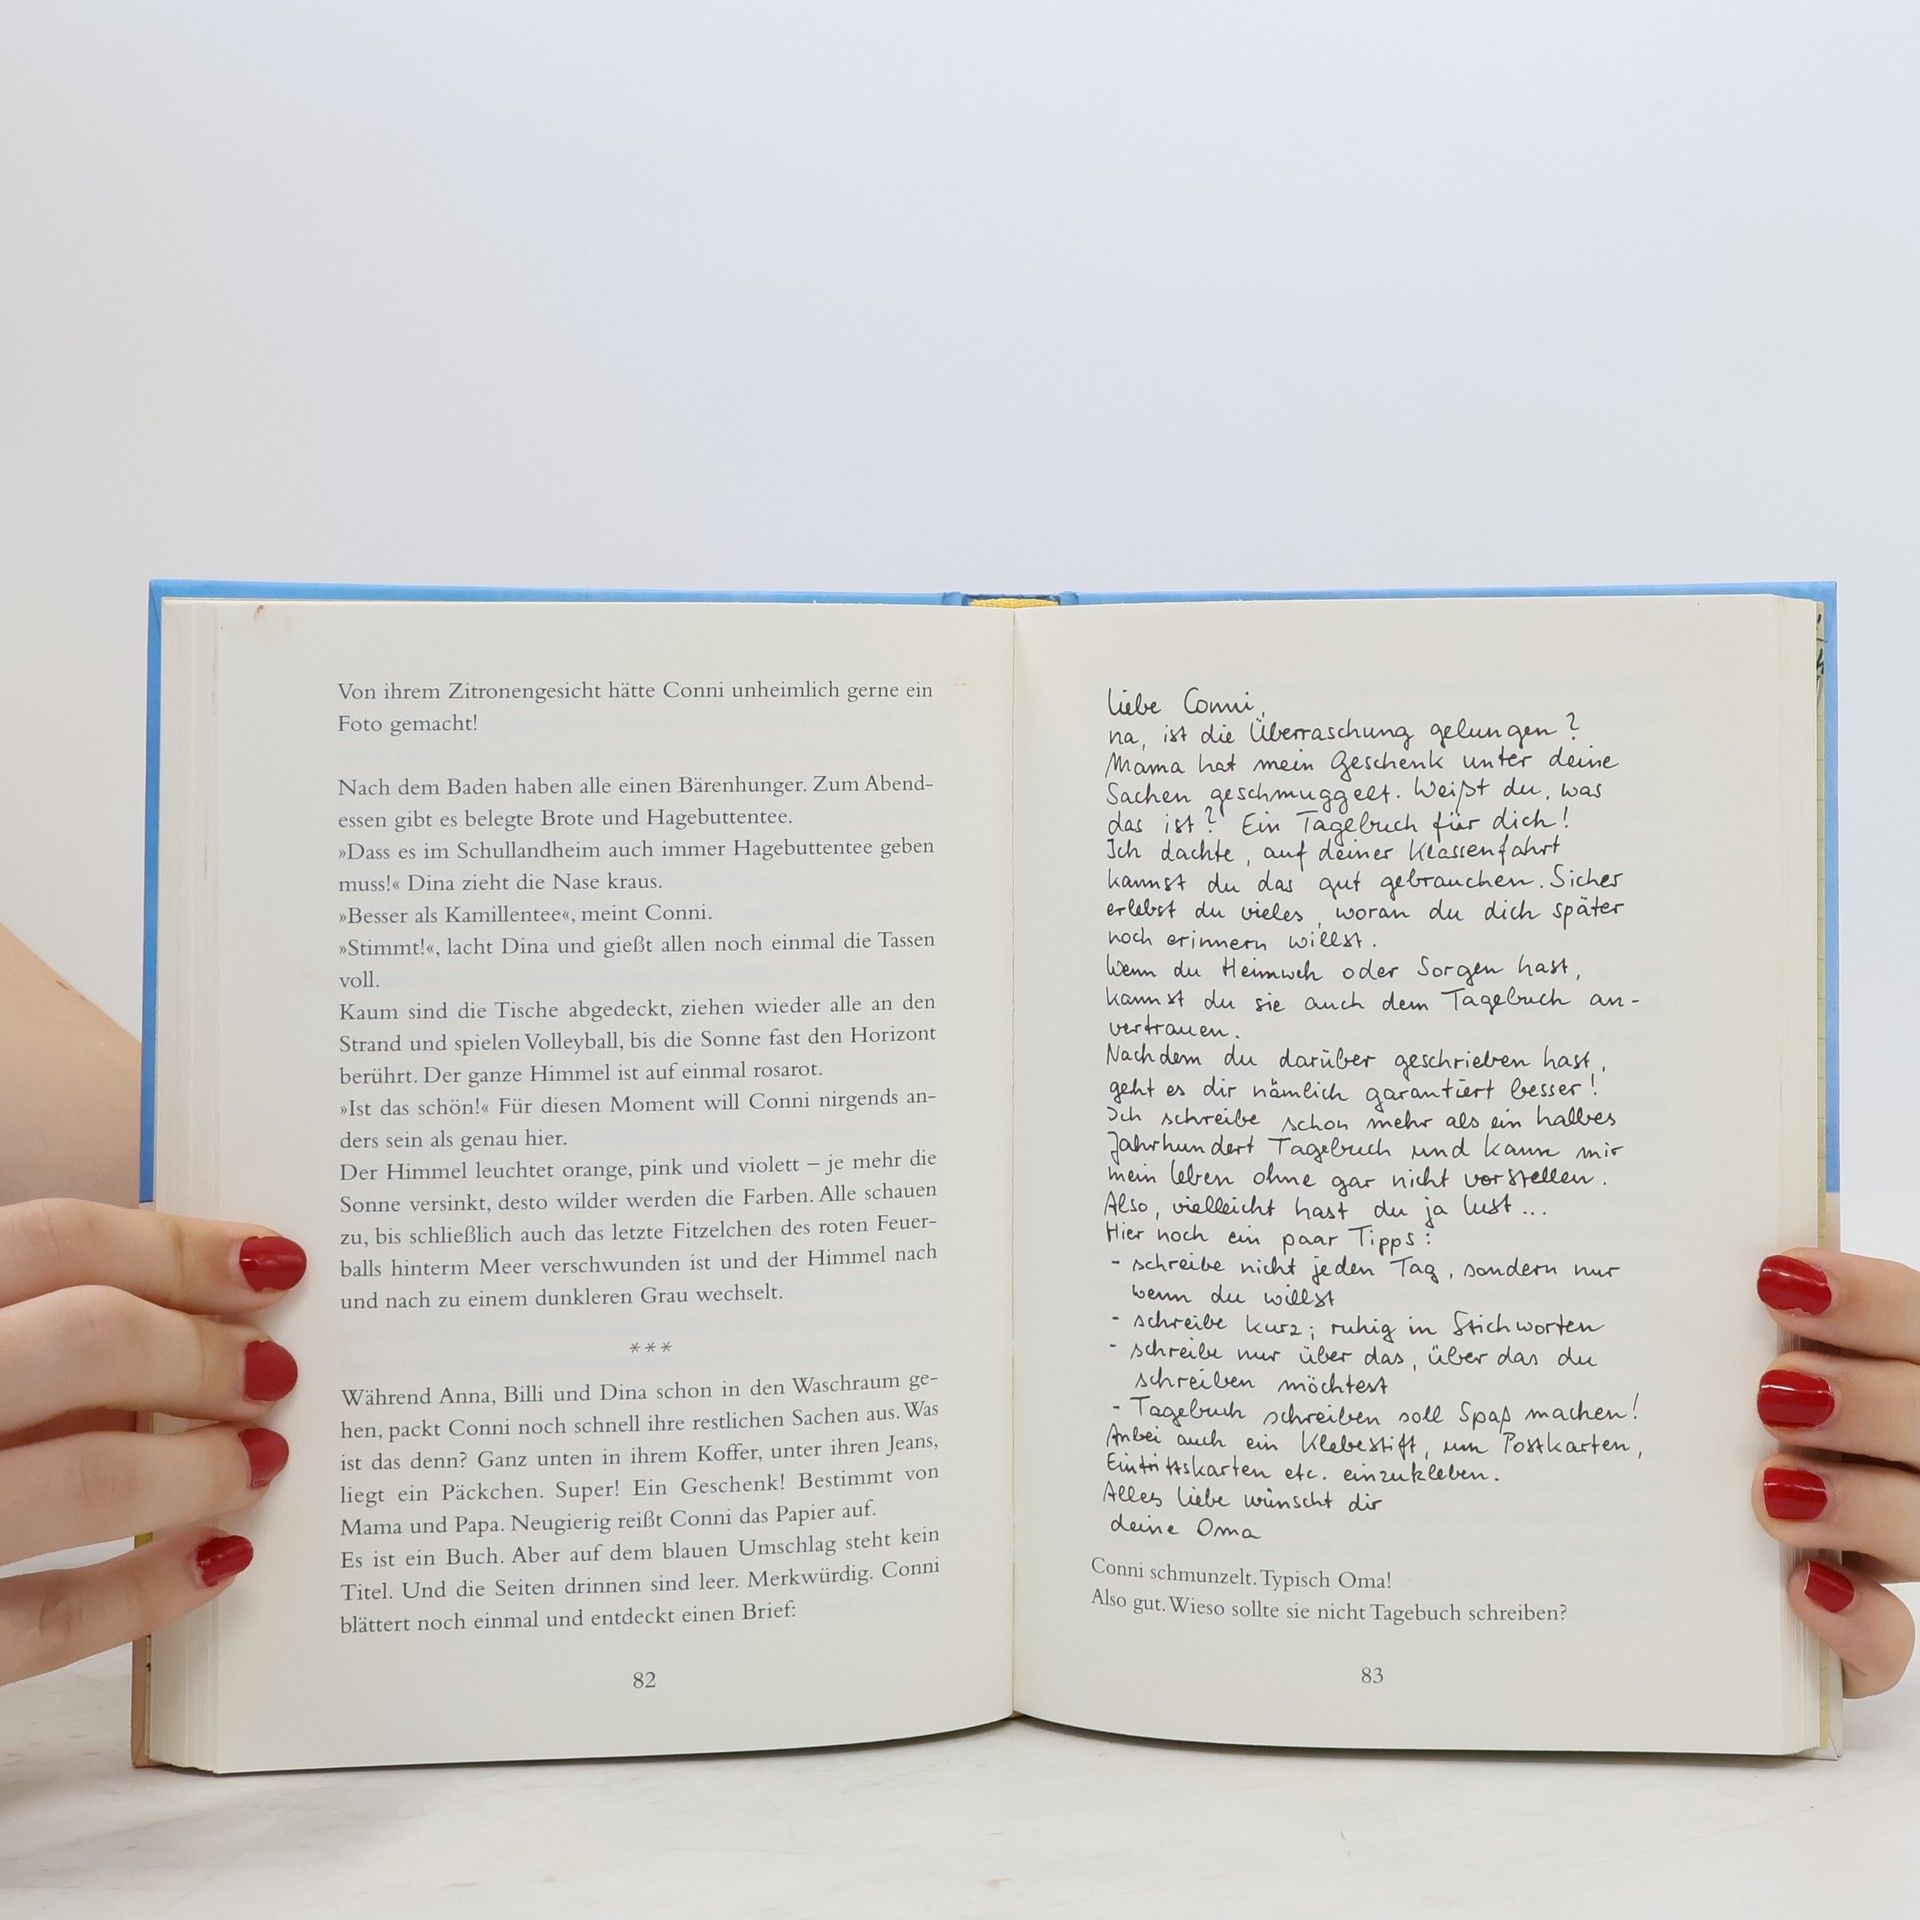 Von ihrem Zitronengesicht hätte Conni unheimlich gerne ein
Foto gemacht!
Nach dem Baden haben alle einen Bärenhunger. Zum Abend-
essen gibt es belegte Brote und Hagebuttentee.
»Dass es im Schullandheim auch immer Hagebuttentee geben
muss!« Dina zieht die Nase kraus.
»Besser als Kamillentee«, meint Conni.
»Stimmt!«, lacht Dina und gießt allen noch einmal die Tassen
voll.
Kaum sind die Tische abgedeckt, ziehen wieder alle an den
Strand und spielen Volleyball, bis die Sonne fast den Horizont
berührt. Der ganze Himmel ist auf einmal rosarot.
»Ist das schön!« Für diesen Moment will Conni nirgends an-
ders sein als genau hier.
Der Himmel leuchtet orange, pink und violett – je mehr die
Sonne versinkt, desto wilder werden die Farben. Alle schauen
zu, bis schließlich auch das letzte Fitzelchen des roten Feuer-
balls hinterm Meer verschwunden ist und der Himmel nach
und nach zu einem dunkleren Grau wechselt.
***
Während Anna, Billi und Dina schon in den Waschraum ge-
hen, packt Conni noch schnell ihre restlichen Sachen aus. Was
ist das denn? Ganz unten in ihrem Koffer, unter ihren Jeans,
liegt ein Päckchen. Super! Ein Geschenk! Bestimmt von
Mama und Papa. Neugierig reißt Conni das Papier auf.
Es ist ein Buch. Aber auf dem blauen Umschlag steht kein
Titel. Und die Seiten drinnen sind leer. Merkwürdig. Conni
blättert noch einmal und entdeckt einen Brief:
82
Liebe Conni,
na, ist die Überraschung gelungen?
Mama hat mein Geschenk unter deine
Sachen geschmuggelt. Weißt du, was
das ist? Ein Tagebuch für dich!
Ich dachte, auf deiner Klassenfahrt
kannst du das gut gebrauchen. Sicher
erlebst du vieles, woran du dich später
noch erinnern willst.
Wenn du Heimweh oder Sorgen hast,
kannst du sie auch dem Tagebuch an-
vertrauen.
Nachdem du darüber geschrieben hast,
geht es dir nämlich garantiert besser!
Ich schreibe schon mehr als ein halbes
Jahrhundert Tagebuch und kann mir
mein Leben ohne gar nicht vorstellen.
Also, vielleicht hast du ja Lust...
Hier noch ein paar Tipps:
- schreibe nicht jeden Tag, sondern nur
wenn du willst
- schreibe kurz; ruhig in Stichworten
- schreibe nur über das, über das du
schreiben möchtest
- Tagebuch schreiben soll Spaß machen!
Anbei auch ein Klebestift, um Postkarten,
Eintrittskarten etc. einzukleben.
Alles Liebe wünscht dir
deine Oma
Conni schmunzelt. Typisch Oma!
Also gut. Wieso sollte sie nicht Tagebuch schreiben?
83